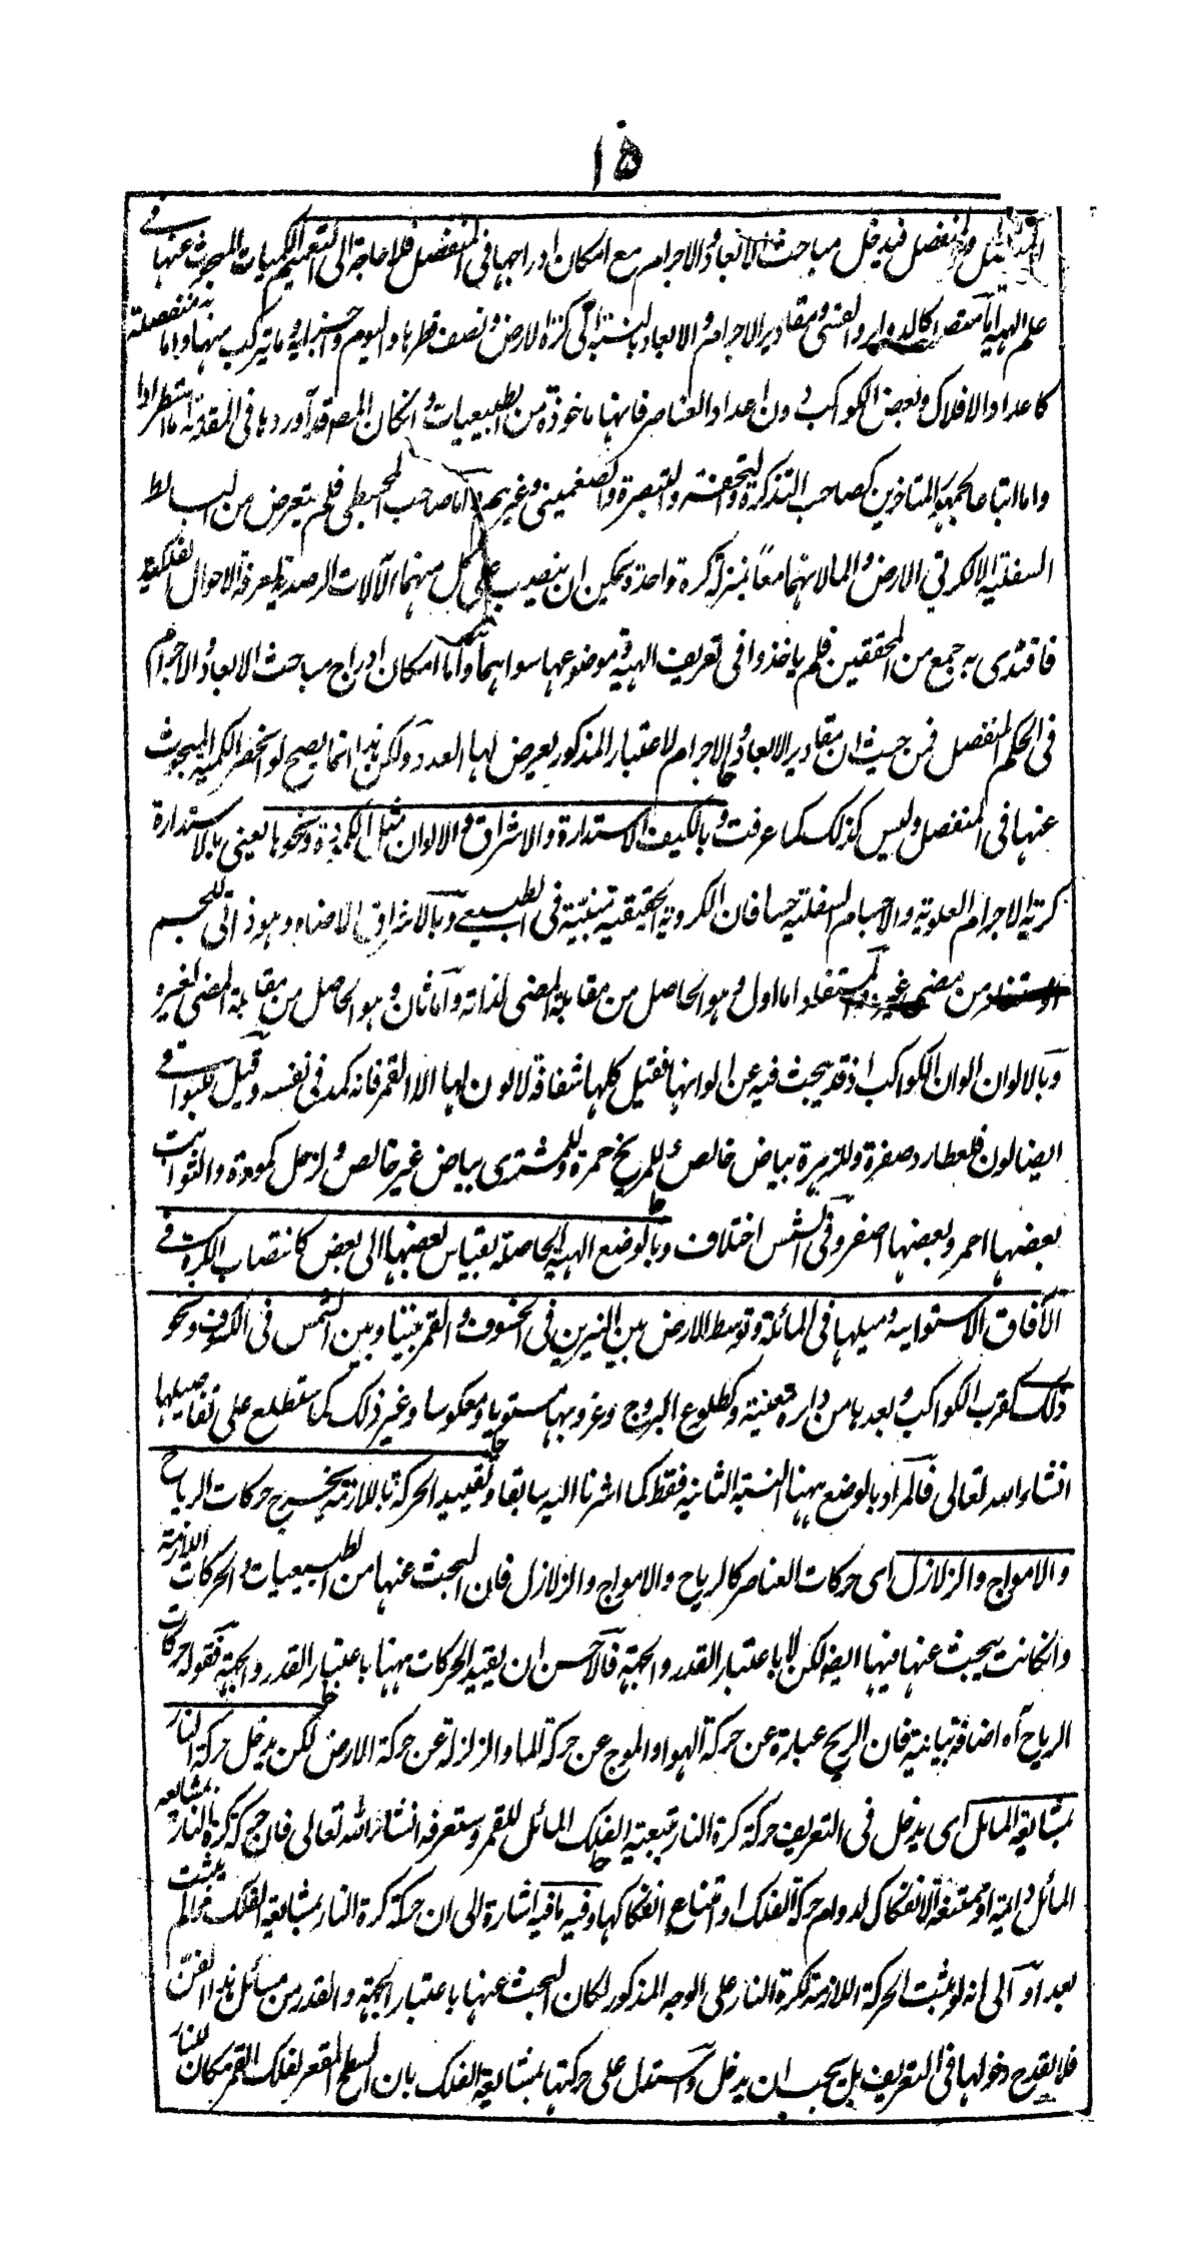 ١٥
المتصل والمنفصل فيدخل مباحث الابعاد والاجرام مع امكان ادراجها فى المنفصل فلا حاجة الى التعميم الكميات المبحوث عنها فے
علم الهيئة اما متصلة كالدوائر والقسى ومقادير الاجرام والابعاد بالنسبة الى كرة الارض ونصف قطرها واليوم واجزائه وما يتركب منها واما منفصلة
كاعداد الافلاك وبعض الكواكب دون اعداد العناصر فانها ماخوذة من الطبيعيات وانكان المصـ قد اوردها فى المقدمة اما استطرادا
واما اتباعا لجمهور المتاخرين كصاحب التذكرة والتحفة والتبصرة والچغمينى وغيرهم واما صاحب المجسطى فلم يتعرض من البسائط
السفلية الا لكرتى الارض والماء لانهما معاً بمنزلة كرة واحدة ويمكن ان ينصب على كل منهما الآلات الرصدية لمعرفة الاحوال الفلكية
فاقتدى به جمع من المحققين فلم ياخذوا فى تعريف الهيئة وموضوعها سواهما واما امكان ادراج مباحث الابعاد والاجرام
فى الحكم المنفصل فمن حيث ان مقادير الابعاد والاجرام لاعتبار المذكور يعرض لها العدد ولكن هذا انما يصح لو انحصر الكمية المبحوث
عنها فى المنفصل وليس كذلك كما عرفت وبالكيف الاستدارة والاشراق والالوان مثل الكمدة ونحوها يعنى بالاستدارة
كرية الاجرام العلوية والاجسام السفلية حسا فان الكروية الحقيقية مبنية فى الطبيعے وبالاشراق الاضاءة وهو ذاتى للجسم
من مضى غيره والمستفاد اما اول وهو الحاصل من مقابلة المضى لذاته واما ثان وهو الحاصل من مقابلة المضى لغيره
وبالالوان الوان الكواكب اذ قد يبحث فيه عن الوانها فقيل كلها شفافة لا لون لها الا القمر فانه كمد فى نفسه وقيل للبواقے
ايضا لون فلعطارد صفرة وللزهرة بياض خالص وللمريخ حمرة وللمشترى بياض غير خالص ولزحل كمودة والثوابت
بعضها احمر وبعضها اصفر وفى الشمس اختلاف وبالوضع الهيئة الحاصلة بقياس بعضها الى بعض كانتصاب الكرة فے
الآفاق الاستوائية وميلها فى المائلة وتوسط الارض بين النيرين فى الخسوف والقمر بيننا وبين الشمس فى الكسوف ونحو
ذلك كقرب الكواكب وبعدها من دائرة معينة وكطلوع البروج وغروبها مستويا ومعكوسا وغير ذلك كما ستطلع على تفاصيلها
انشاء الله تعالى فالمراد بالوضع ههنا النسبة الثانية فقط كما اشرنا اليه سابقا وتقييد الحركة باللازمة يخرج حركات الرياح
والامواج والزلازل اى حركات العناصر كالرياح والامواج والزلازل فان البحث عنها من الطبيعيات والحركات اللازمة
وانكانت يبحث عنها فيها ايضا لكن لا باعتبار القدر والجهة فالاحسن ان يقيد الحركات ههنا باعتبار القدر والجهة فقوله حركات
الرياح آه اضافة بيانية فان الريح عبارة عن حركة الهواء والموج عن حركة الماء والزلزلة عن حركة الارض لكن يدخل حركة النار
بمشايعة المائل اى يدخل فى التعريف حركة كرة النار بتبعية الفلك المائل للقمر وستعرفه انشاء الله تعالى فان حركة كرة النار بمشايعة
المائل دائمية او ممتنعة الانفكاك لدوام حركة الفلك او امتناع انفكاكها وفيه ما فيه اشارة الى ان حركة كرة النار بمشايعة الفلك مما لم يثبت
بعد او الى انه لو ثبت الحركة اللازمة لكرة النار على الوجه المذكور لكان البحث عنها باعتبار الجهة والقدر من مسائل هذا الفن
فلا يقدح دخولها فى التعريف بل يجب ان يدخل واستدل على حركتها بمشايعة الفلك بان السطح المقعر لفلك القمر مكان للنار